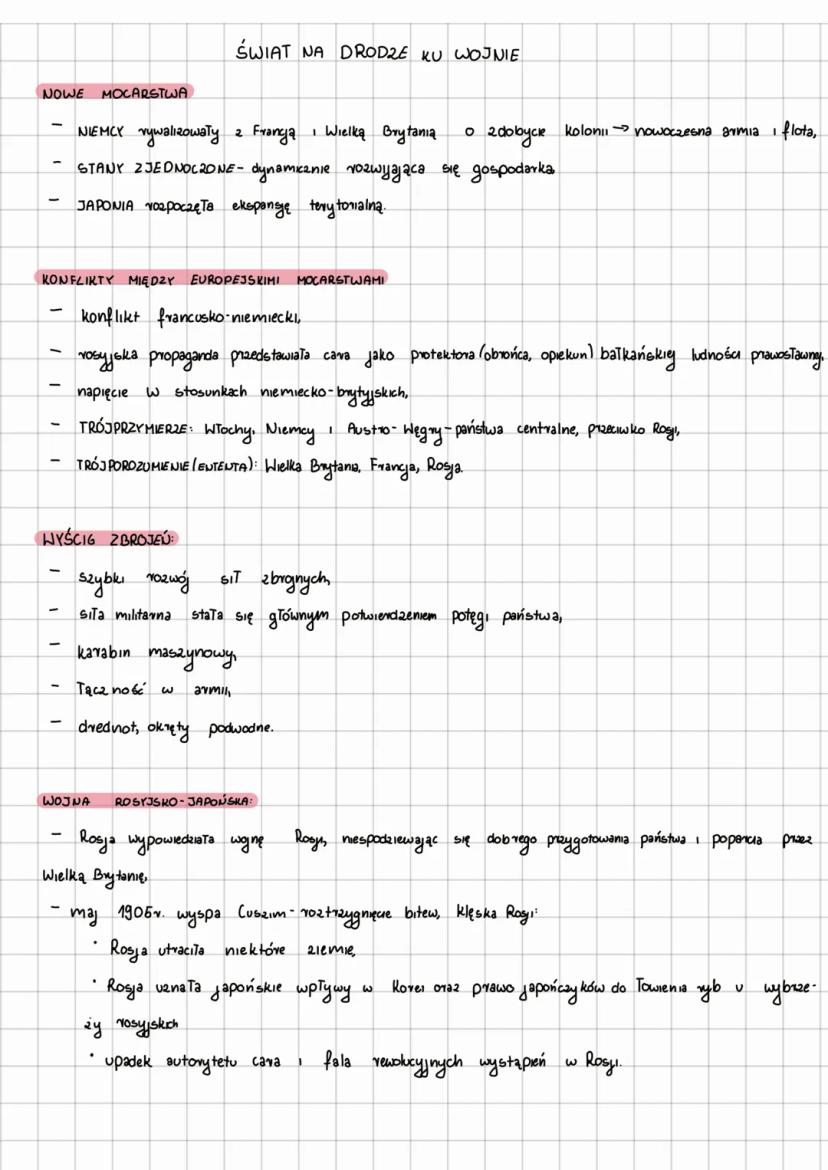 ŚWIAT NA DRODZE KU WOJNIE
NOWE MOCARSTWA
- NIEMCY rywalizowały z Francją i Wielką Brytanią o zdobycie kolonii → nowoczesna armia i flota,
- STANY ZJEDNOCZONE - dynamicznie rozwijająca się gospodarka
- JAPONIA rozpoczęła ekspansję terytorialną.
KONFLIKTY MIĘDZY EUROPEJSKIMI MOCARSTWAMI
- konflikt francusko-niemiecki,
- rosyjska propaganda przedstawiała cara jako protektora (obrońca, opiekun) bałkańskiej ludności prawosławnej,
- napięcie w stosunkach niemiecko-brytyjskich,
- TRÓJPRZYMIERZE: Włochy, Niemcy i Austro-Węgry - państwa centralne, przeciwko Rosji,
- TRÓJPOROZUMIENIE (ENTENTA): Wielka Brytania, Francja, Rosja.
WYŚCIG ZBROJEŃ:
- szybki rozwój sił zbrojnych,
- siła militarna stała się głównym potwierdzeniem potęgi państwa,
- karabin maszynowy,
- łączność w armii,
- drednot, okręty podwodne.
WOJNA ROSYJSKO-JAPOŃSKA:
- Rosja wypowiedziała wojnę Rosji, niespodziewając się dobrego przygotowania państwa i poparcia przez
Wielką Brytanię,
- maj 1905r. wyspa Cuszim - roztrzygnięcie bitew, klęska Rosji:
· Rosja utraciła niektóre ziemie,
· Rosja uznała japońskie wpływy w Korei oraz prawo japończyków do łowienia ryb u wybrze-
ży rosyjskich
· upadek autorytetu cara i fala rewolucyjnych wystąpień w Rosji.